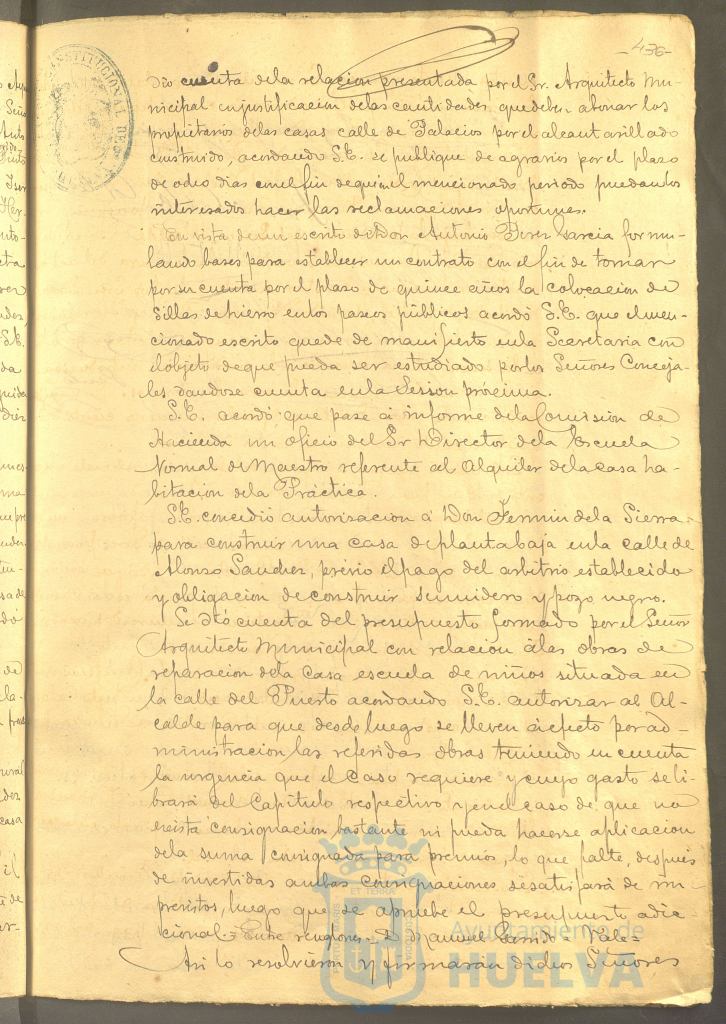 -436-
Dio cuenta dela relacion presentada por el Sr. Arquitecto Mu-
nicipal en justificacion delas cantidades, que deben abonar los
propietarios delas casas calle de Palacios por el alcantarillado
construido, acordando S.E. se publique de agravios por el plazo
de ocho dias con el fin de que en el mencionado periodo puedan los
interesados hacer las reclamaciones oportunas.
En vista de un escrito de Don Antonio Perez Garcia formu-
lando bases para establecer un contrato con el fin de tomar
por su cuenta por el plazo de quince años la colocacion de
Sillas de hierro en los paseos públicos acordó S.E. que el men-
cionado escrito quede de manifiesto en la Secretaria con
el objeto de que pueda ser estudiado por los Señores Conceja-
les dandose cuenta en la Session próxima.
S.E. acordó que pase á informe dela Comision de
Hacienda un oficio del Sr Director dela Escuela
Normal de Maestro referente al Alquiler dela casa ha-
bitacion dela Práctica.
S.E. concedió autorizacion á Don Fermin dela Sierra
para construir una casa de planta baja en la calle de
Alonso Sanchez, prévio el pago del arbitrio establecido
y obligacion de construir sumidero y pozo negro.
Se dió cuenta del presupuesto formado por el Señor
Arquitecto Municipal con relacion á las obras de
reparacion dela Casa escuela de niños situada en
la calle del Puerto acordando S.E. autorizar al Al-
calde para que desde luego se lleven á efecto por ad-
ministracion las referidas obras teniendo en cuenta
la urgencia que el caso requiere y cuyo gasto se li-
brará del Capítulo respectivo y en el caso de que no
exista consignacion bastante ni pueda hacerse aplicacion
dela suma consignada para premios, lo que falte, despues
de invertidas ambas consignaciones se satisfará de im-
previstos, luego que se apruebe el presupuesto adi-
cional.= Entre renglones = D Manuel Garrido = Vale=
Asi lo resolvieron y firmarán dichos Señores
Ayuntamiento de
HUELVA